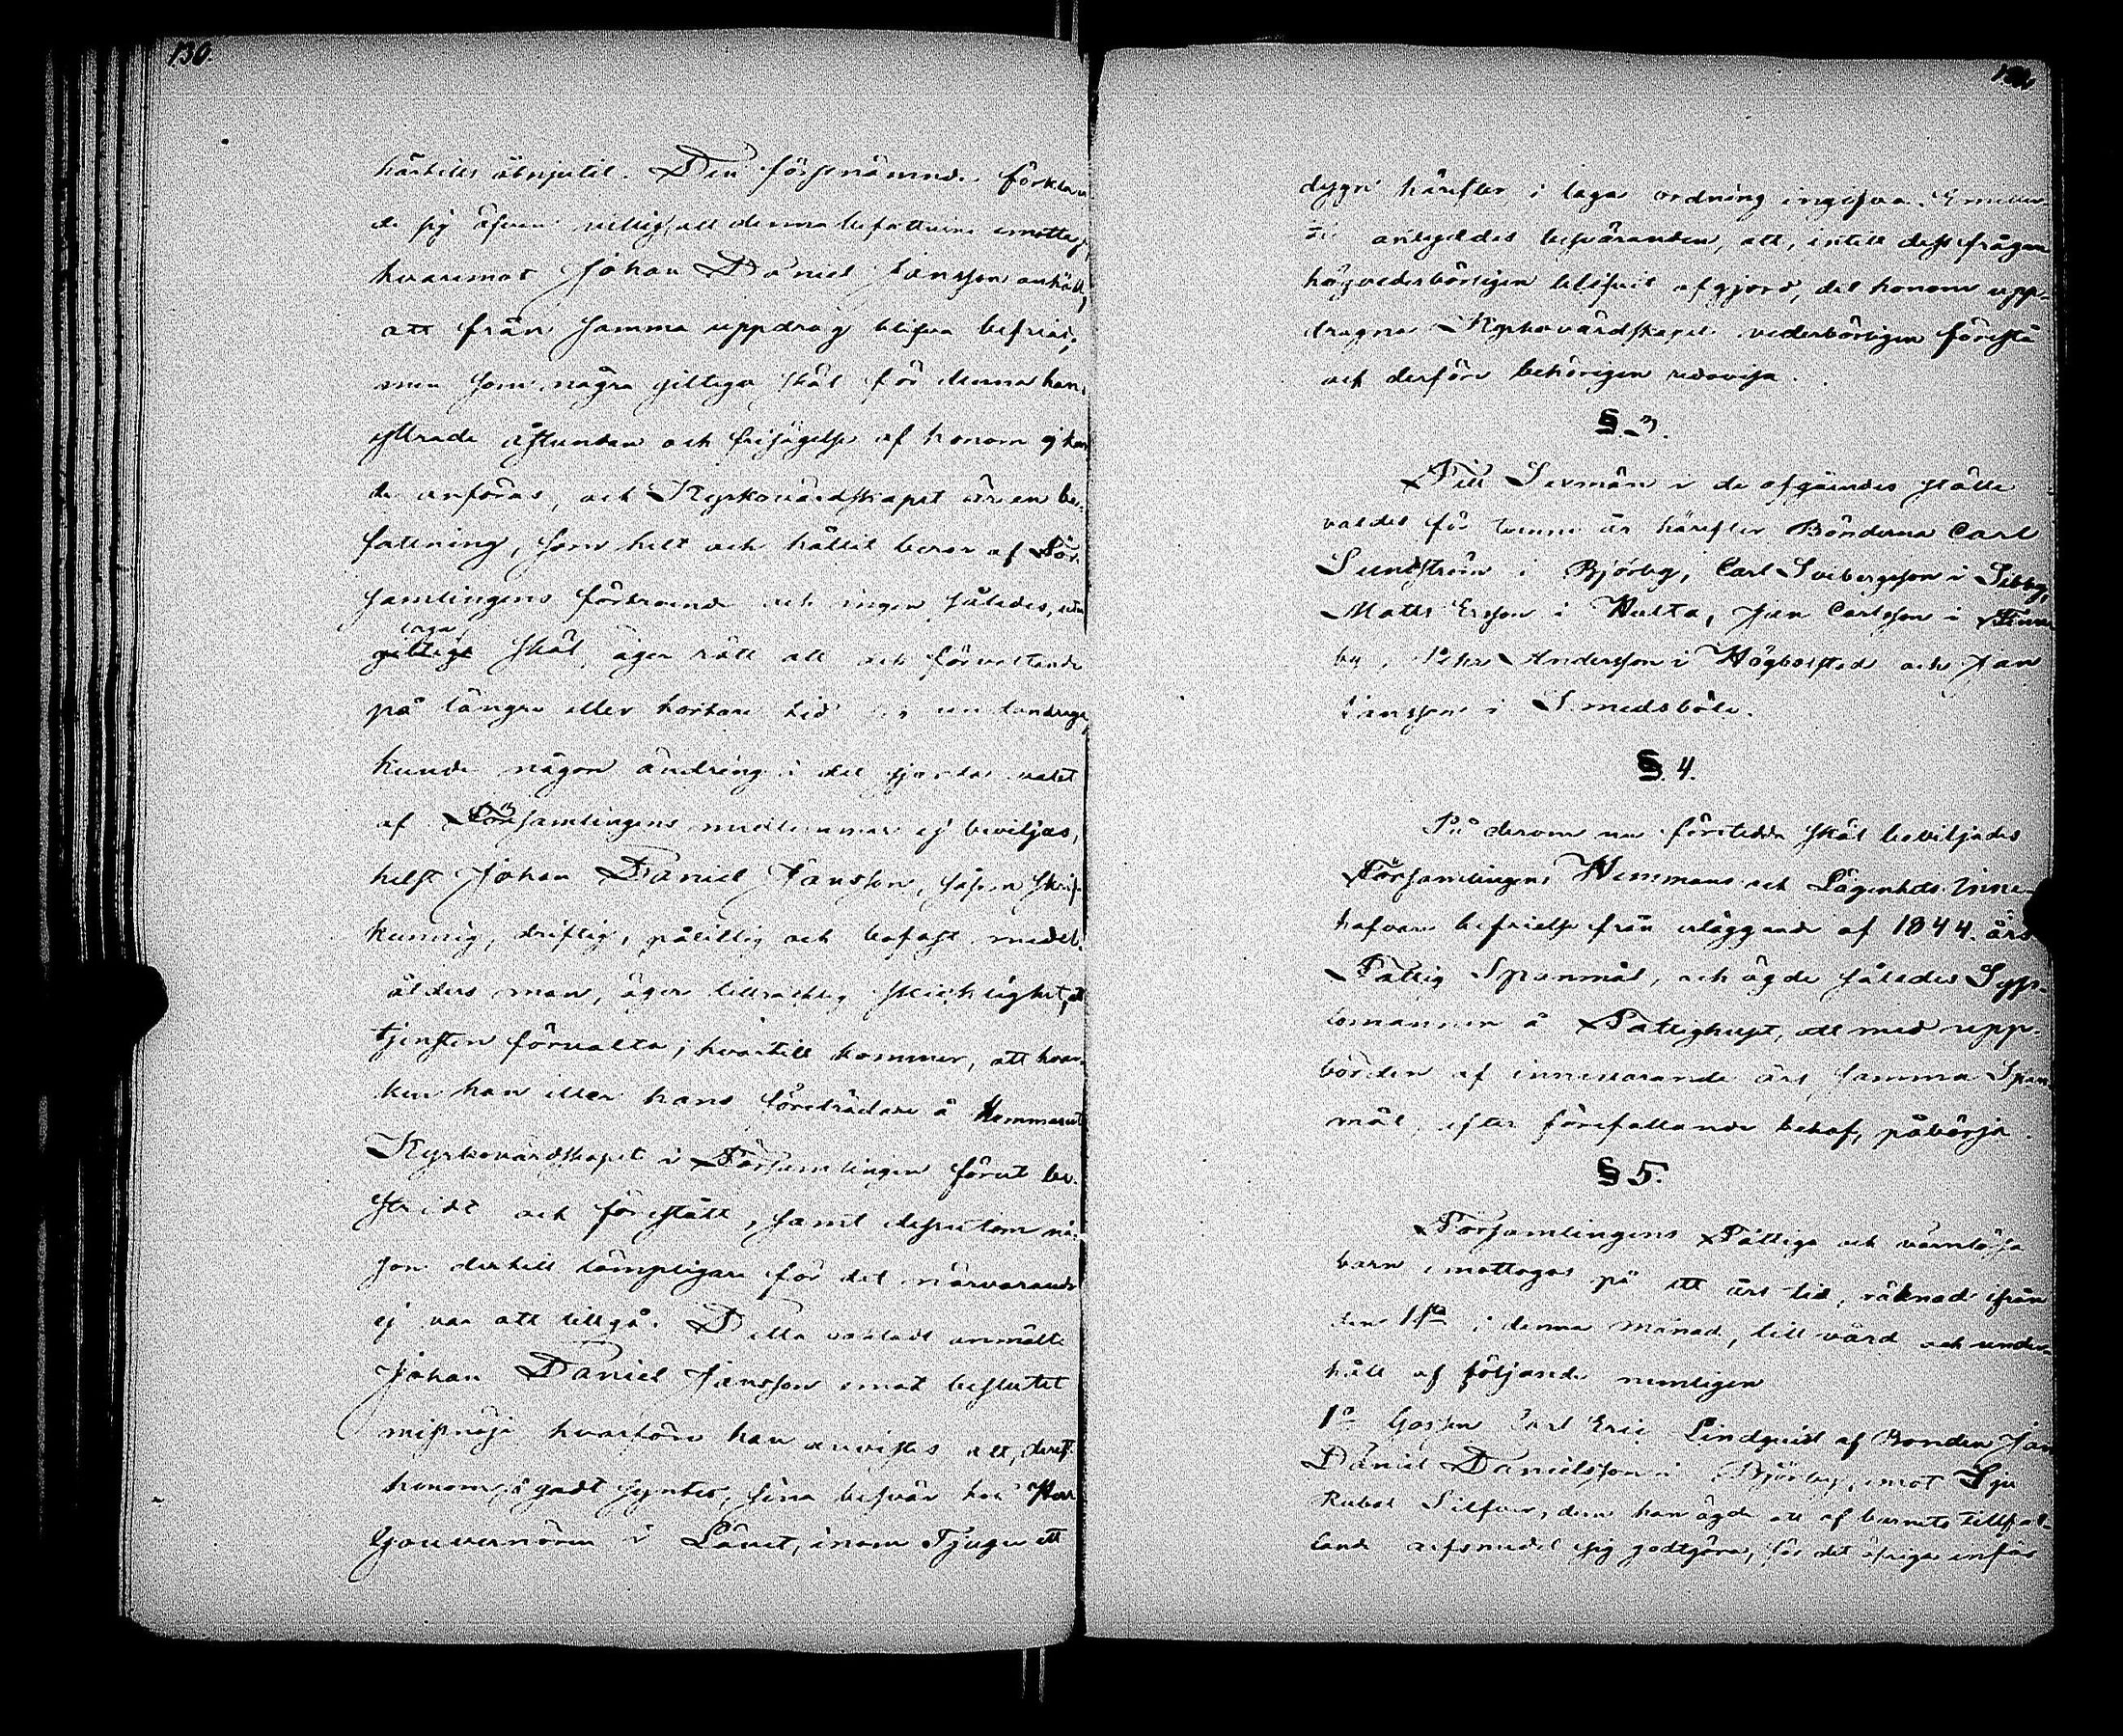 130.
härtills åtnjutit. Den förstnämnde förklara
de sig äfven villig, att denna befattning emottaga,
hvaremot Johan Daniel Jansson anhöll,
att från samma uppdrag blifva befriad;
men som några giltiga skäl för denna hans
yttrade åstundan och frisägelse af honom ej kun
de anföras, och Kyrkovärdskapet är en be-
fattning, som helt och hållit beror af För-
samlingens förtroende och ingen således, utan
laga
giltiga skäl, äger rätt att och förvaltande
på längre eller kortare tid sig undandraga,
kunde någon ändring i det gjorda valet
af Församlingens medlemmar ej beviljas,
helst Johan Daniel Jansson, såsom skrif
kunnig, driftig, pålitlig och bofast medel-
ålders man, äger tillräcklig skicklighet, att
tjensten förvalta; hvartill kommer, att hvar-
ken han eller hans företrädare å Hemmanet
Kyrkovärdskapet i Församlingen förut be-
stridt och förestått, samt dessutom nå-
gon dertill lämpligare för det närvarande
ej var att tillgå. Detta oaktadt anmälte
Johan Daniel Jansson emot beslutet
missnöje hvarföre han anvistes att, derest
honom så godt syntes, sina besvär hos Herr
Gouvernören i Länet, inom Tjugu ett
dygn härefter, i laga ordning ingifva. Emeller-
tid ålades besväranden, att, intill dess frågan
högvederbörligen blifvit afgjord, det honom upp-
dragna Kyrkovärdskapet vederbörligen förestå
och derföre behörigen redovisa.
§. 3.
Till Sexmän i de afgåendes ställe
valdes för tvenne år härefter Bönderna Carl
Sundström i Björby, Carl Svibergsson i Sibby,
Matts Ersson i Hulta, Jan Carlsson i Finn
by, Pehr Andersson i Högbolsted och Jan
Jansson i Smedsböle.
§. 4.
På derom nu företedda skäl beviljades
Församlingens Hemmans och Lägenhets Inne-
hafvare befrielse från erläggande af 1844. års
Fattig Spanmål, och ägde således Syss-
lomannen å Fattighuset, att med upp-
börden af innevarande års samma Span
mål, efter förefallande behof, påbörja.
§ 5.
Församlingens Fattiga och värnlösa
barn emottogos på ett års tid, räknad ifrån
den 1sta i denna månad, till vård och under-
håll af följande nemligen
1o Gossen Carl Eric Lindquist af Bonden Jan
Daniel Danielsson i Björby, emot Sju
Rubel Silfver, dem han ägde att af barnets tillfal-
lande arfsmedel sig godtgöra, för det öfriga enfås